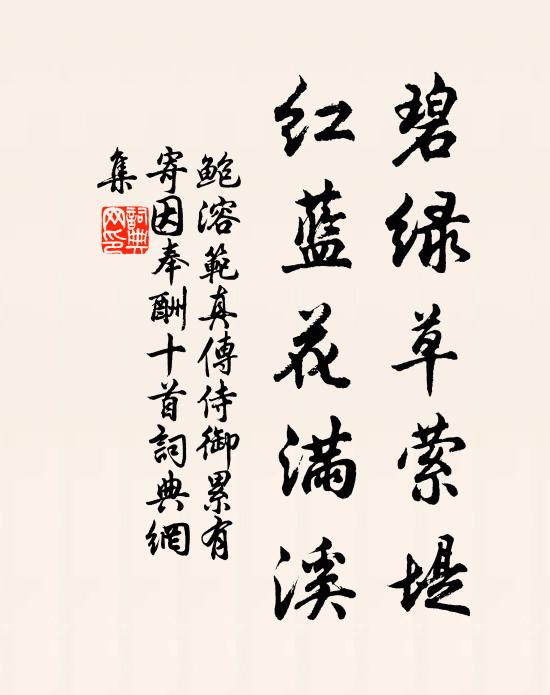 碧绿草萦堤
红蓝花满溪
鲍溶範真傳侍御累有
寄因奉酬十首詞典網
集
詞典网印